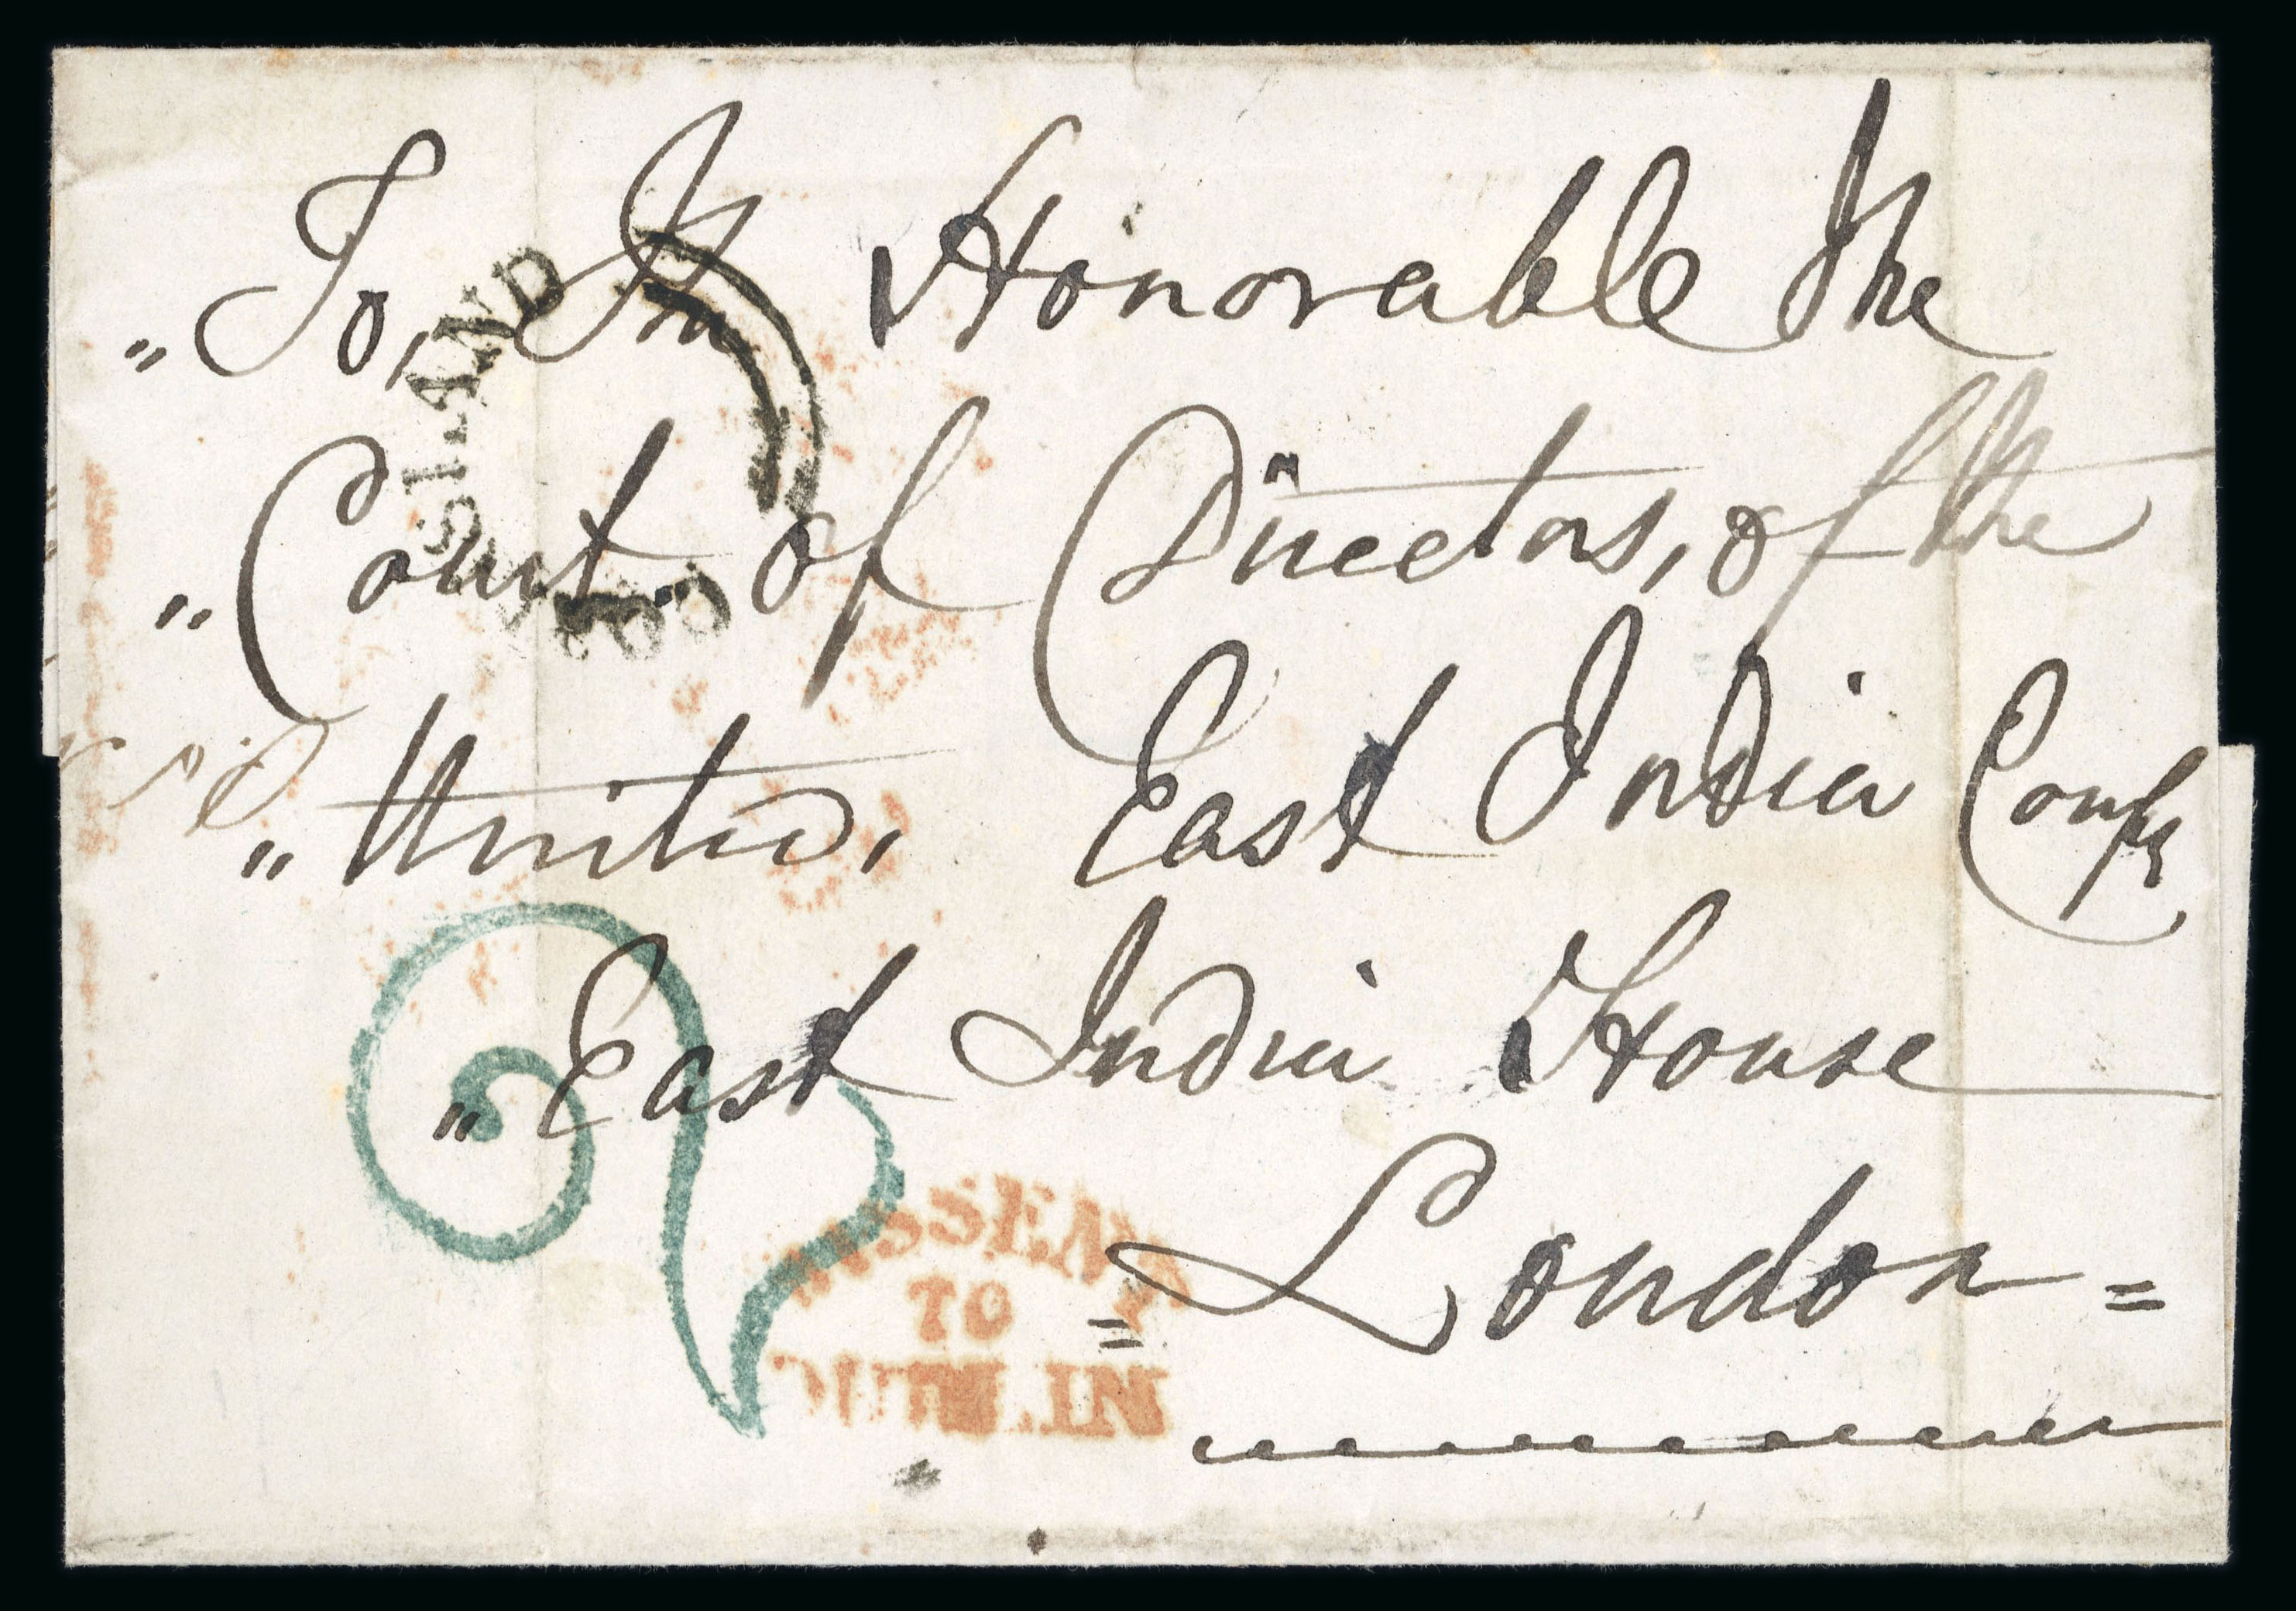 „To, The Honorable The
„Court of Directors, of the
„United, East India Compy
„East India House
=London=
ISLAND
TO